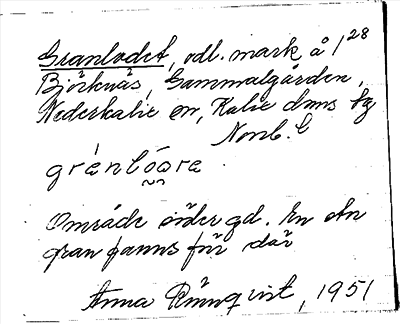 Granladet, odl. mark å 1/28
Björknäs, Gammalgården,
Nederkalix sn, Kalix dnns tg
Norrb. l
grànlóara
Område öster gd. En stor
gran fanns för där
Anna Rönnqvist, 1951